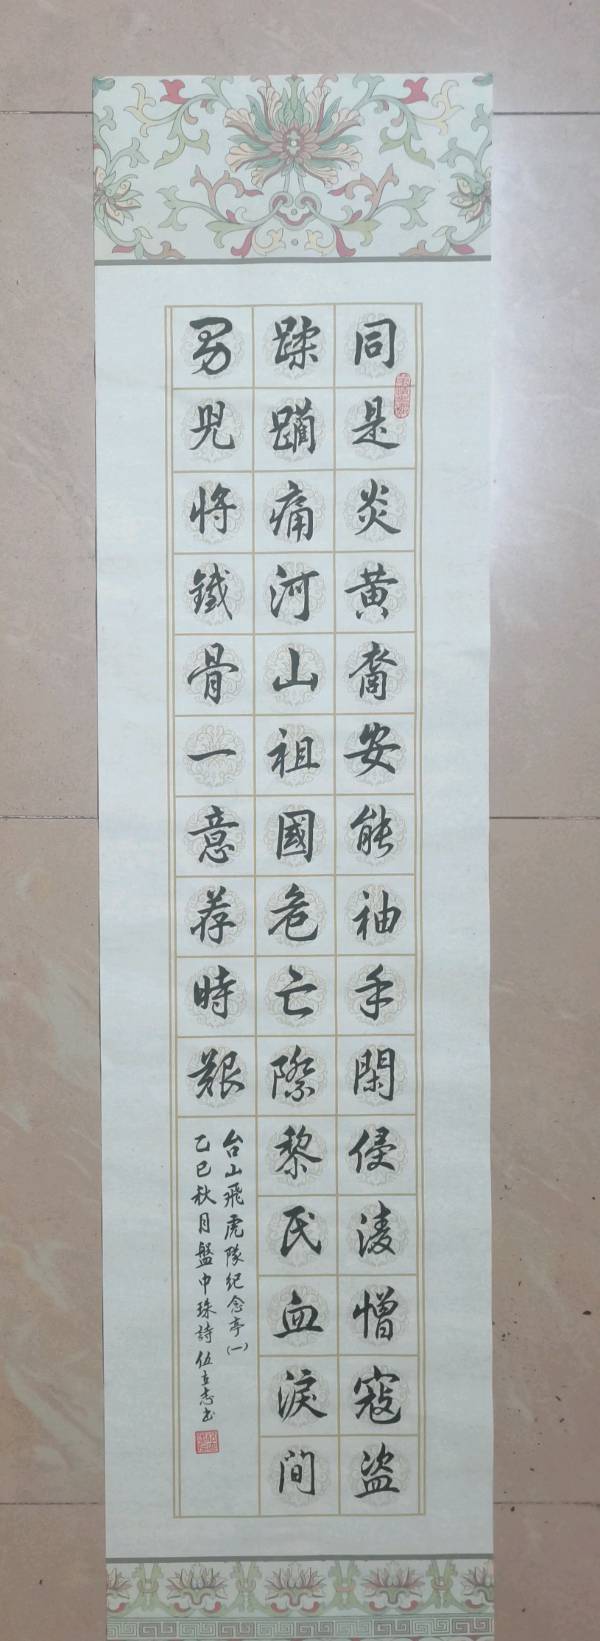 同是炎黄裔安能袖手閑侵淩憎寇盜
蹂躪痛河山祖國危亡際黎民血淚間
男兒将鐵骨一意荐時艱
台山飛虎隊紀念亭(一)
乙巳秋月盤中珠詩伍立志书